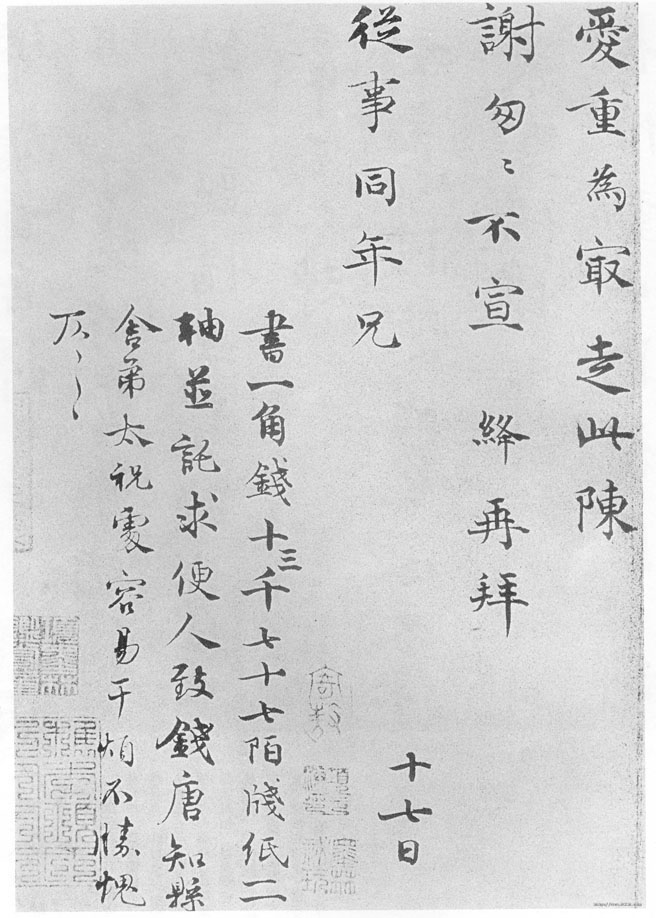 愛重為㝡走此陳
謝匆〻不宣　絳再拜
從事同年兄
十七日
書一角錢十三千七十七陌牋紙二
軸並託求便人致錢唐知縣
舍弟太祝處容易干煩不勝愧